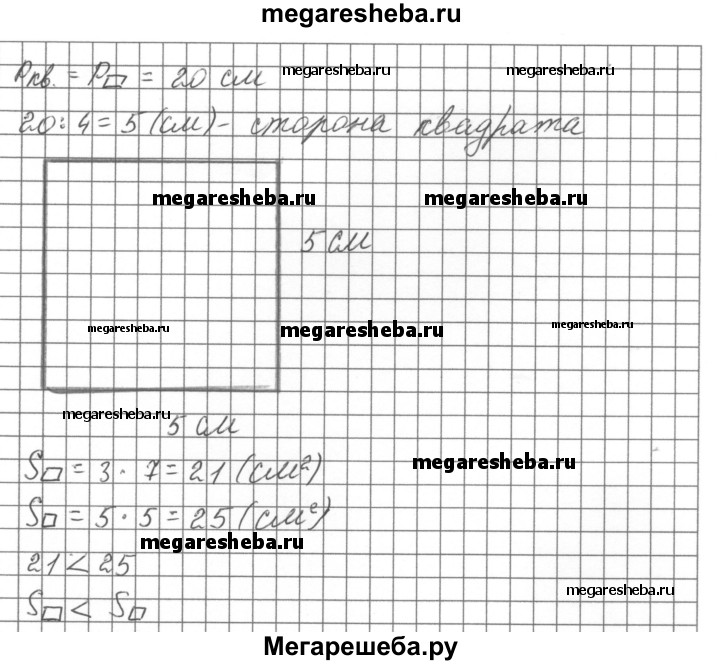 megaresheba.ru
Pкв. = P▭ = 20 см megaresheba.ru megaresheba.ru
20:4=5 (см) - сторона квадрата
megaresheba.ru megaresheba.ru
5 см
megaresheba.ru megaresheba.ru megaresheba.ru
megaresheba.ru
5 см
S▭ = 3 · 7 = 21 (см²) megaresheba.ru
S□ = 5 · 5 = 25 (см²)
megaresheba.ru
21 < 25
megaresheba.ru
S▭ < S□
Мегарешеба.ру